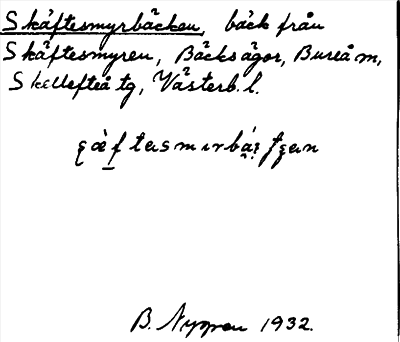 Skäftesmyrbäcken, bäck från
Skäftesmyren, Bäcksågor, Bureå m,
Skellefteå tg, Västerb. l.
B. Nygren 1932.